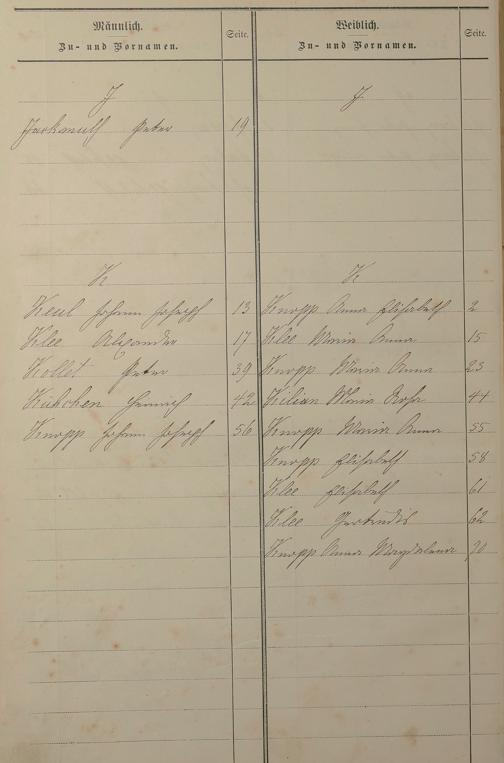 Männlich.
Zu- und Vornamen.
Seite.
J
Peter 19
K
Keul Johann Joseph 13
Klee Alexander 17
Kollet Peter 39
Kübchen Heinrich 42
Knopp Johann Joseph 56
Weiblich.
Zu- und Vornamen.
Seite.
J
K
Knopp Anna Elisabeth 2
Klee Maria Anna 15
Knopp Maria Anna 23
Kilian Maria Rosa 44
Knopp Maria Anna 55
Knopp Elisabeth 58
Klee Elisabeth 61
Klee Gertrudis 62
Knopp Anna Magdalena 70